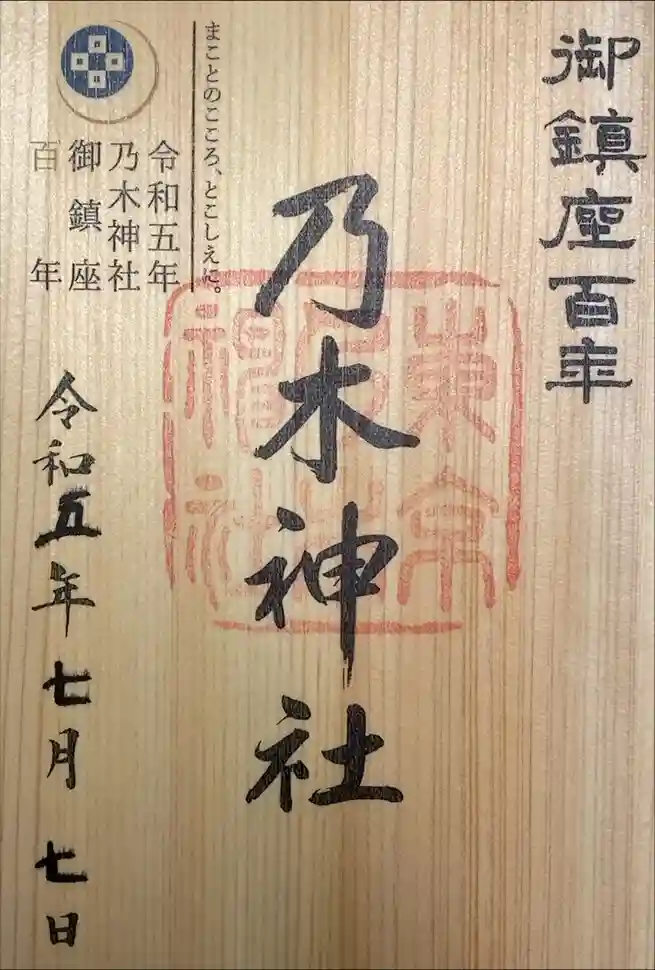 御鎮座百年
乃木神社
東京
乃木
神社
まことのこころ、とこしえに。
令和五年
乃木神社
御鎮座
百年
令和五年七月七日